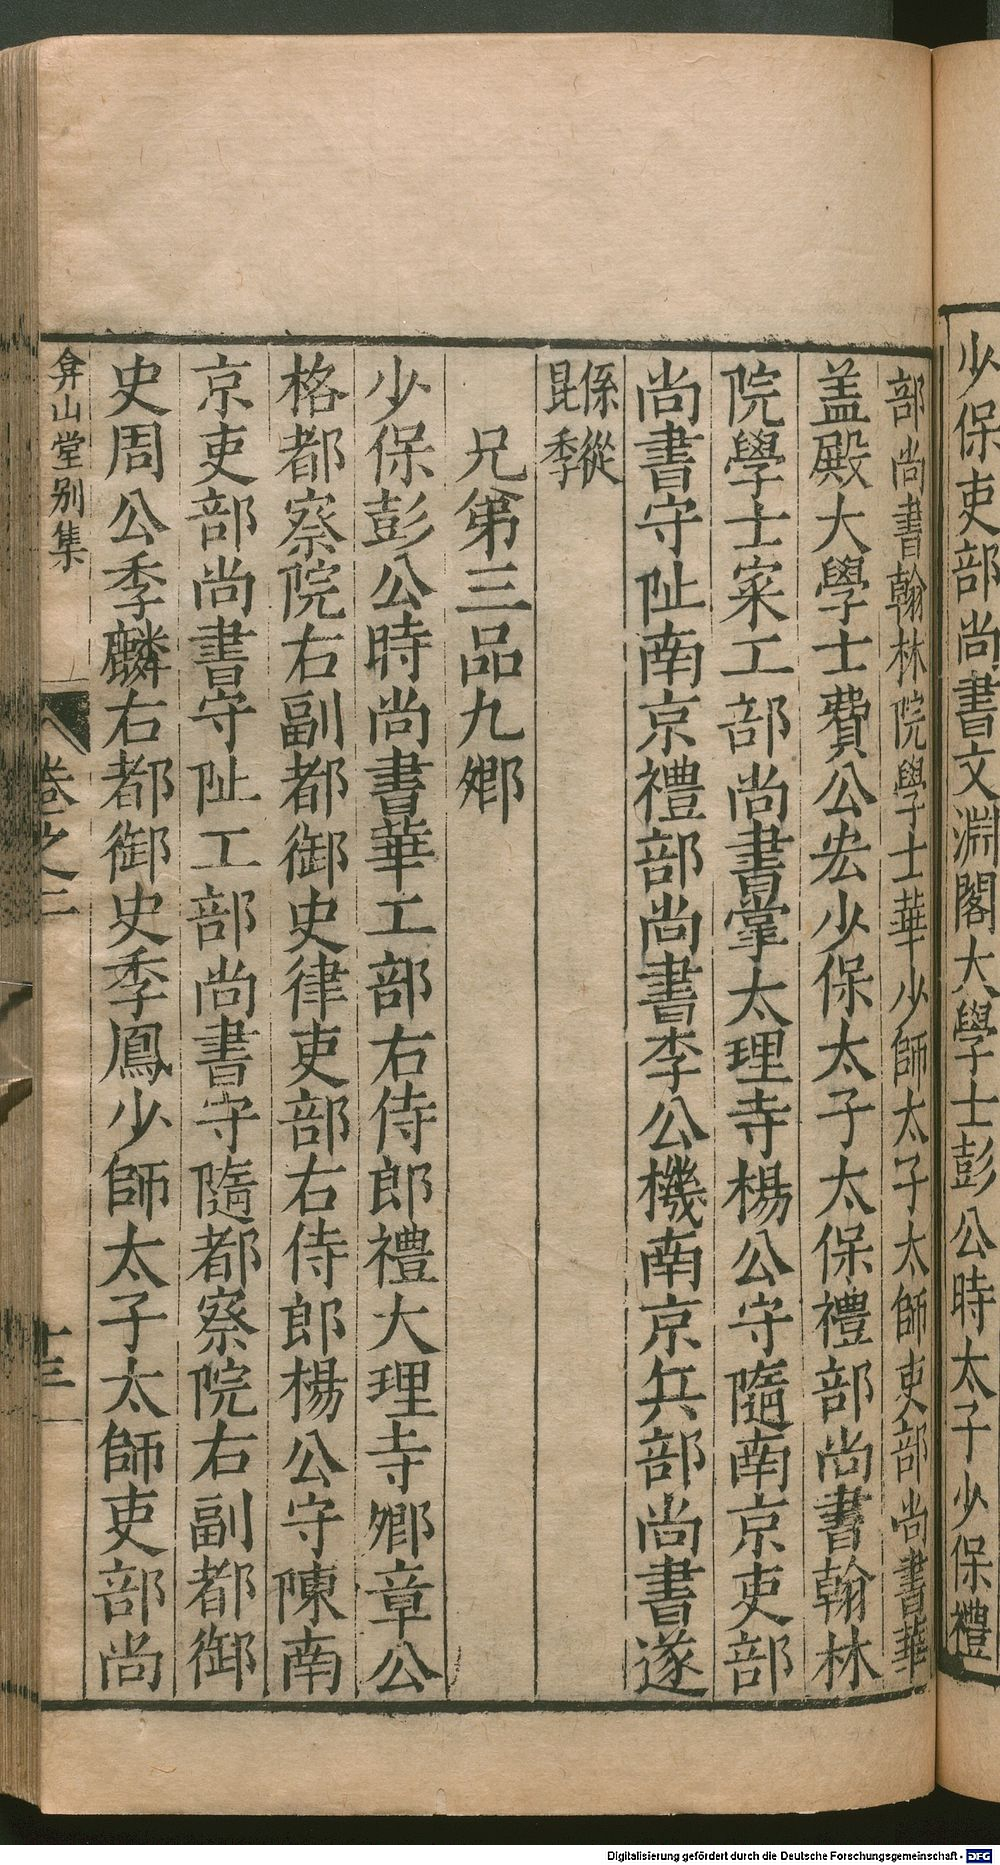 少保吏部尚書文淵閣大學士彭公時太子少保禮
部尚書翰林院學士華少師太子太師吏部尚書華
盖殿大學士費公宏少保太子太保禮部尚書翰林
院學士寀工部尚書掌太理寺楊公守隨南京吏部
尚書守阯南京禮部尚書李公機南京兵部尚書遂
係從
昆季
兄弟三品九卿
少保彭公時尚書華工部右侍郎禮大理寺卿章公
格都察院右副都御史律吏部右侍郎楊公守陳南
京吏部尚書守阯工部尚書守隨都察院右副都御
史周公季麟右都御史季鳳少師太子太師吏部尚
弇山堂別集
卷之二
十三
Digitalisierung gefördert durch die Deutsche Forschungsgemeinschaft - DFG